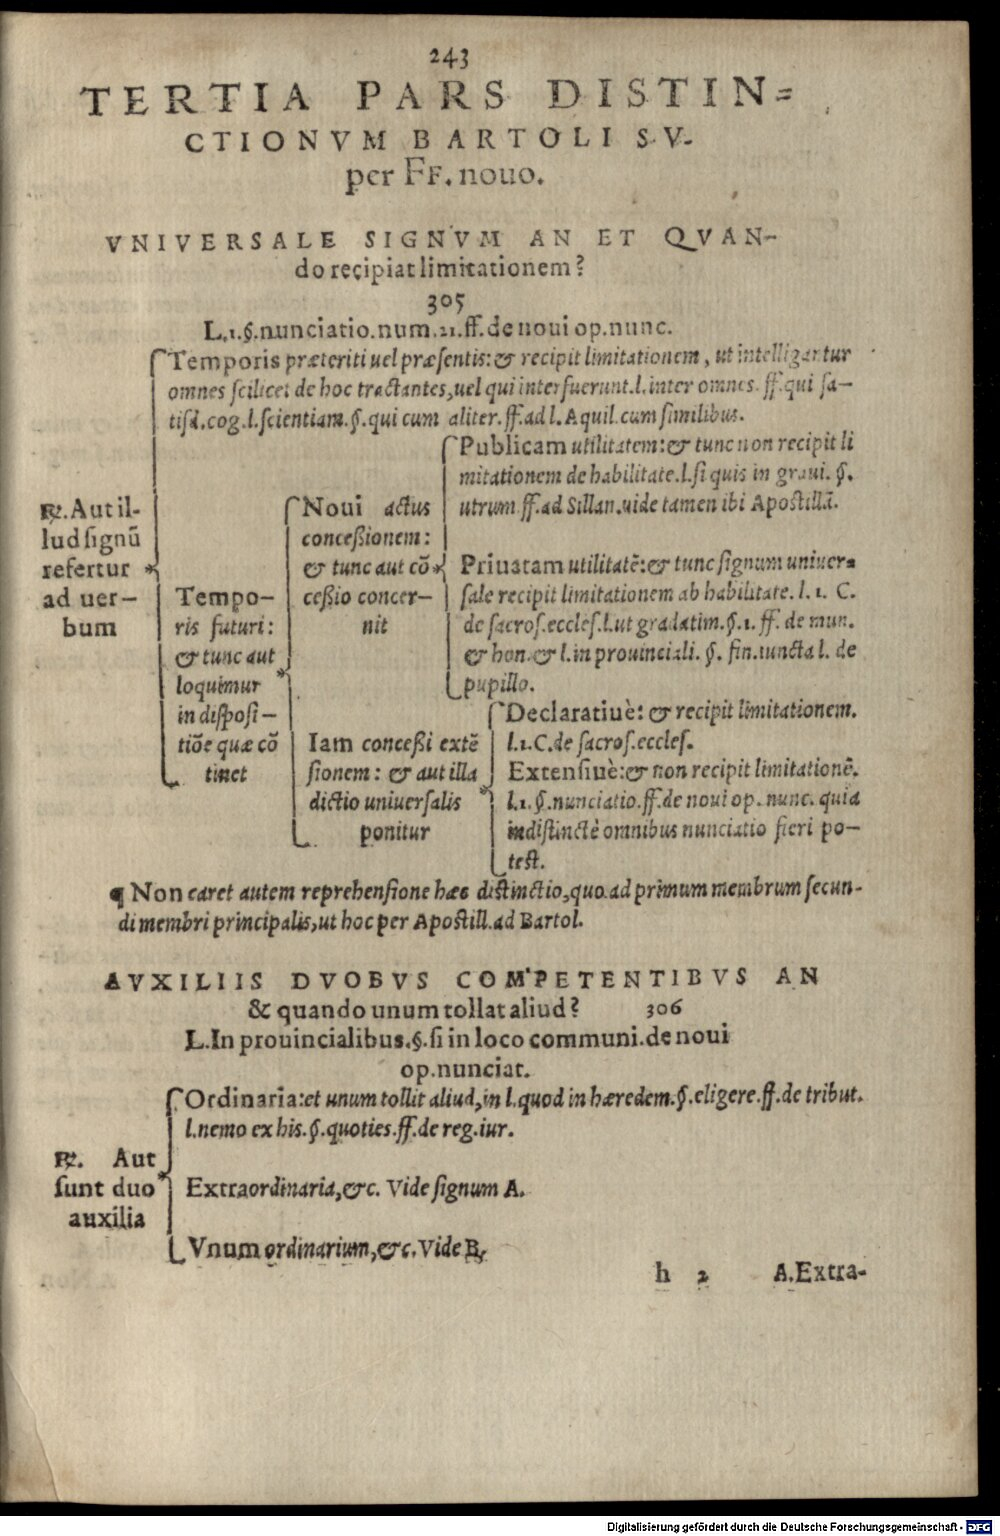 243
TERTIA PARS DISTIN=
CTIONVM BARTOLI SV-
per FF. nouo.
VNIVERSALE SIGNVM AN ET QVAN-
do reçipiat limitationem?
305
L.1.§.nunciatio.num.21.ff.de noui op.nunc.
Temporis præteriti uel præsentis: & recipit limitationem, ut intelligantur
omnes scilicet de hoc tractantes, uel qui interfuerunt.l.inter omnes.ff.qui sa-
tisd.cog.l.scientiam.§.qui cum aliter.ff.ad l.Aquil.cum similibus.
℞.Aut il-
lud signũ
refertur
ad uer-
bum
Tempo-
ris futuri:
& tunc aut
loquimur
in disposi-
tiõe quæ cõ
tinet
Noui actus
conceßionem:
& tunc aut cõ
ceßio concer-
nit
Publicam utilitatem: & tunc non recipit li
mitationem de habilitate.l.si quis in graui.§.
utrum.ff.ad Sillan.uide tamen ibi Apostillã.
Priuatam utilitatẽ: & tunc signum uniuer=
sale recipit limitationem ab habilitate. l. 1. C.
de sacros.eccles.l.ut gradatim.§.1. ff. de mun.
& hon. & l.in prouinciali. §. fin.iuncta l. de
pupillo.
Iam conceßi extẽ
sionem: & aut illa
dictio uniuersalis
ponitur
Declaratiuè: & recipit limitationem.
l.1.C.de sacros.eccles.
Extensiuè: & non recipit limitationẽ.
l.1.§.nunciatio.ff.de noui op. nunc. quia
indistinctè omnibus nunciatio fieri po-
test.
¶ Non caret autem reprehensione hæc distinctio, quo ad primum membrum secun-
di membri principalis, ut hoc per Apostill.ad Bartol.
AVXILIIS DVOBVS COMPETENTIBVS AN
& quando unum tollat aliud? 306
L.In prouincialibus.§.si in loco communi.de noui
op.nunciat.
℞. Aut
sunt duo
auxilia
Ordinaria: et unum tollit aliud, in l.quod in hæredem.§.eligere.ff.de tribut.
l.nemo ex his.§.quoties.ff.de reg.iur.
Extraordinaria, &c. Vide signum A.
Vnum ordinarium, &c. Vide B.
h 2 A.Extra-
Digitalisierung gefördert durch die Deutsche Forschungsgemeinschaft - DFG